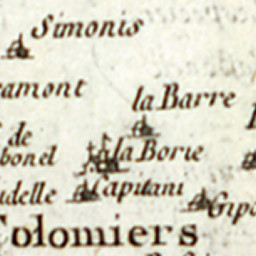 Simonis
amont
la Barre
de
bonel
la Borie
udelle
Capitani
Gipo
Colomiers